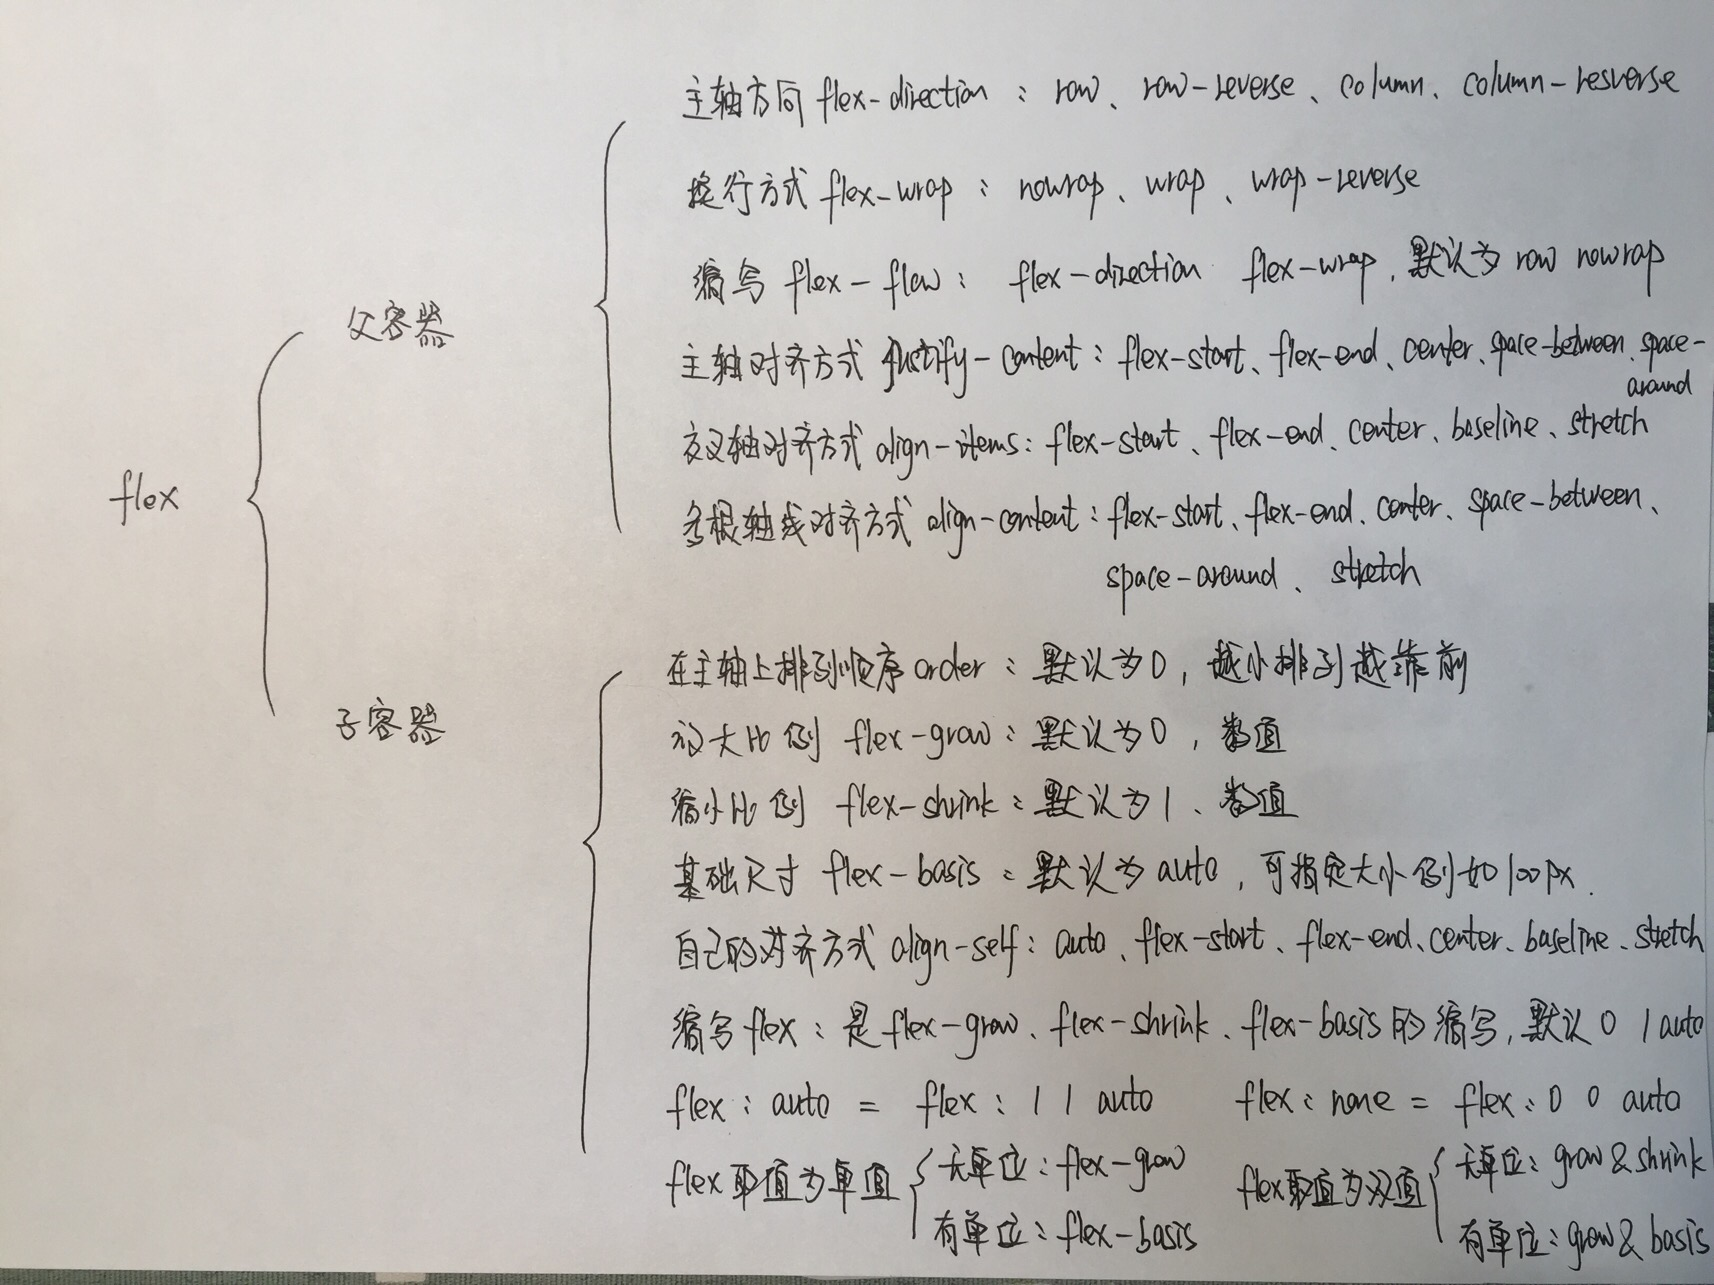 主轴方向 flex-direction：row、row-reverse、column、column-resverse
换行方式 flex-wrap：nowrap、wrap、wrap-reverse
缩写 flex-flow：flex-direction flex-wrap，默认为 row nowrap
父容器
主轴对齐方式 justify-content：flex-start、flex-end、center、space-between、space-
around
交叉轴对齐方式 align-items：flex-start、flex-end、center、baseline、stretch
flex
多根轴线对齐方式 align-content：flex-start、flex-end、center、space-between、
space-around、stretch
在主轴上排列顺序 order：默认为0，越小排列越靠前
子容器
放大比例 flex-grow：默认为0，数值
缩小比例 flex-shrink：默认为1、数值
基础尺寸 flex-basis：默认为 auto，可指定大小例如100px.
自己的对齐方式 align-self：auto、flex-start、flex-end、center、baseline、stretch
缩写 flex：是 flex-grow、flex-shrink、flex-basis 的缩写，默认 0 1 auto
flex：auto = flex：1 1 auto flex：none = flex：0 0 auto
flex取值为单值 无单位：flex-grow flex取值为双值 无单位：grow & shrink
有单位：flex-basis 有单位：grow & basis